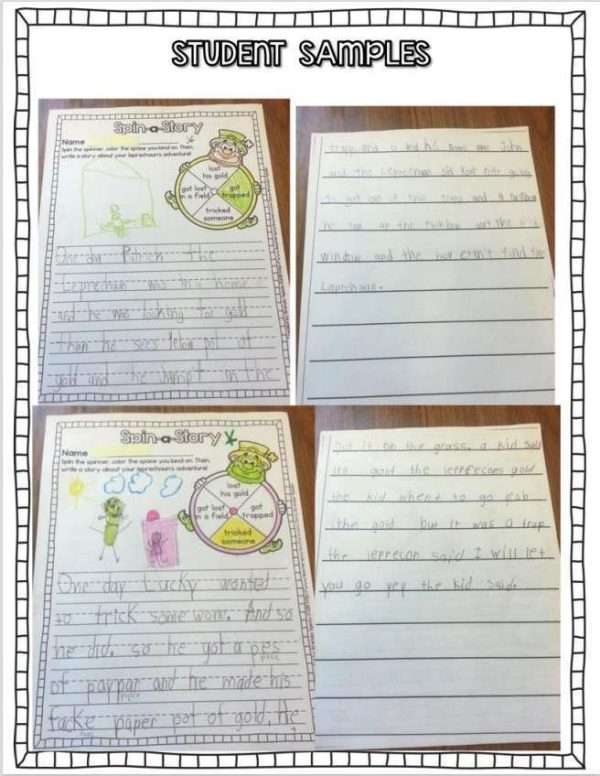 STUDENT SAMPLES
Spin-a-Story
Name
Spin the spinner, color the space you land on. Then,
write a story about your leprechaun's adventure!
lost
his gold
got lost
in a field
got
trapped
tricked
someone
One day Patrick the
Leprechan was in a home
and he was looking for gold
then he sees pot of
gold and he Jumpt in the
trap and a kid his name John
and the Leprechan
got out of this trap and a
he the
window and the boy can't find the
Leprechan.
Spin-a-Story
Name
Spin the spinner, color the space you land on. Then,
write a story about your leprechaun's adventure!
lost
his gold
got lost
in a field
got
trapped
tricked
someone
One day Lucky wanted
to trick some wone. And so
he did. so he got a pes
of pappar and he made his
facke paper pot of gold. He
put it on the grass. a kid said
gold the gold
the kid whent to go
the gold but it was a trap
the leprecon said I will let
you go yep the kid said.